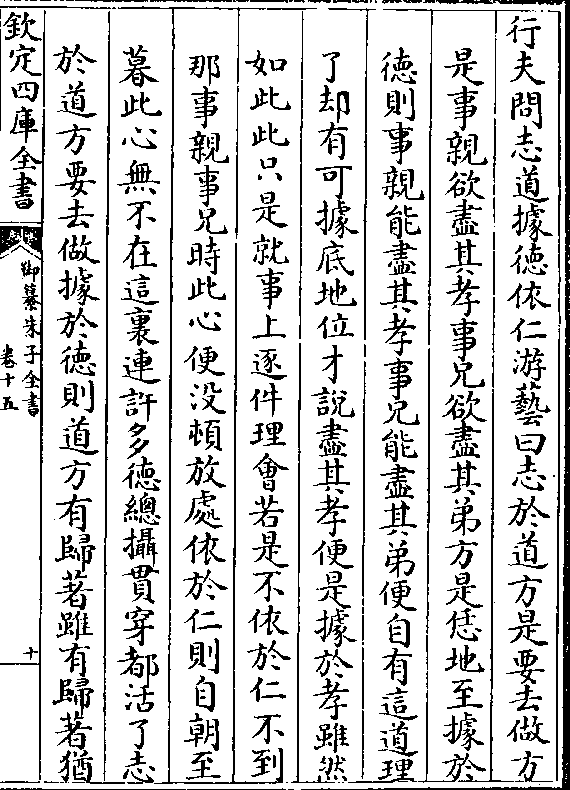 行夫問志道據徳依仁游藝曰志於道方是要去做方
是事親欲盡其孝事兄欲盡其弟方是恁地至據於
徳則事親能盡其孝事兄能盡其弟便自有這道理
了却有可據底地位才說盡其孝便是據於孝雖然
如此此只是就事上逐件理會若是不依於仁不到
那事親事兄時此心便没頓放處依於仁則自朝至
暮此心無不在這裏連許多徳總攝貫穿都活了志
於道方要去做據於徳則道方有歸著雖有歸著猶
欽定四庫全書
御纂朱子全書
卷十五
十